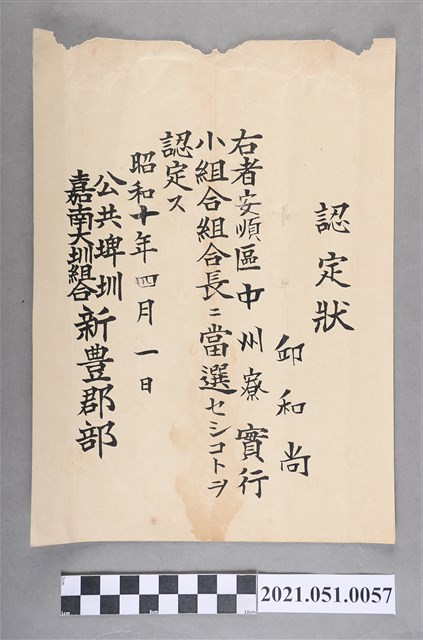 認定狀
邱和尚
右者安順區中州寮實行
小組合組合長ニ當選セシコトヲ
認定ス
昭和十年四月一日
公共埤圳
嘉南大圳組合新豊郡部
2021.051.0057